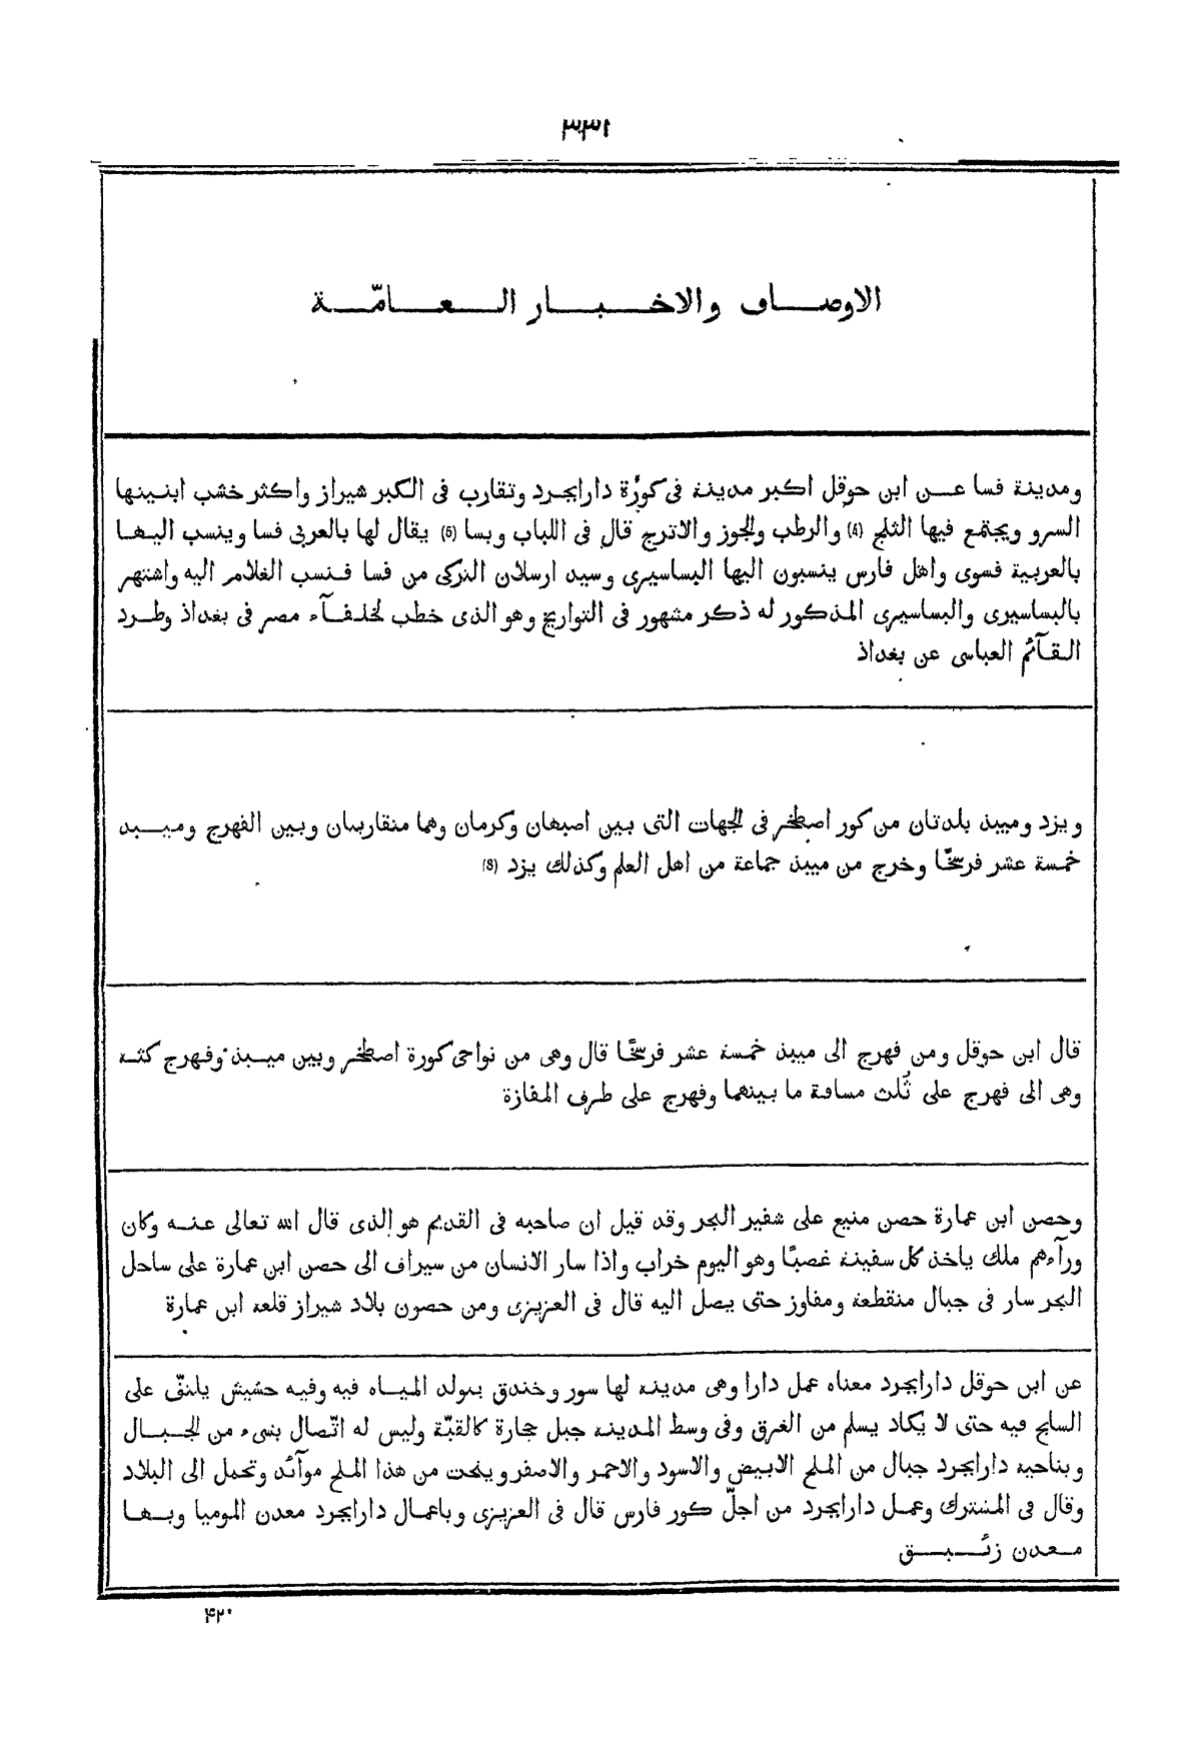 ٣٣١
الاوصاف والاخبار العامّة
ومدينة فسا عن ابن حوقل اكبر مدينة فى كورة دارابجرد وتقارب فى الكبر شيراز واكثر خشب ابنيتها
السرو ويجتمع فيها الثلج (4) والرطب والجوز والاترج قال فى اللباب وبسا (5) يقال لها بالعربى فسا وينسب اليها
بالعربية فسوى واهل فارس ينسبون اليها البساسيرى وسيد ارسلان التركى من فسا فنسب الغلام اليه واشتهر
بالبساسيرى والبساسيرى المذكور له ذكر مشهور فى التواريخ وهو الذى خطب لخلفآء مصر فى بغداذ وطرد
القآئم العباسى عن بغداذ
ويزد وميبذ بلدتان من كور اصطخر فى الجهات التى بين اصبهان وكرمان وهما متقاربتان وبين الفهرج وميبد
خمسة عشر فرسخًا وخرج من ميبذ جماعة من اهل العلم وكذلك يزد (8)
قال ابن حوقل ومن فهرج الى ميبذ خمسة عشر فرسخًا قال وهى من نواحى كورة اصطخر وبين ميبذ وفهرج كثة
وهى الى فهرج على ثُلث مسافة ما بينهما وفهرج على طرف المفازة
وحصن ابن عمارة حصن منيع على شفير البحر وقد قيل ان صاحبه فى القديم هو الذى قال الله تعالى عنه وكان
ورآءهم ملك ياخذ كل سفينة غصبًا وهو اليوم خراب واذا سار الانسان من سيراف الى حصن ابن عمارة على ساحل
البحر سار فى جبال منقطعة ومفاوز حتى يصل اليه قال فى العزيزى ومن حصون بلاد شيراز قلعة ابن عمارة
عن ابن حوقل دارابجرد معناه عمل دارا وهى مدينة لها سور وخندق يتولد المياه فيه وفيه حشيش يلتفّ على
السابح فيه حتى لا يكاد يسلم من الغرق وفى وسط المدينة جبل حجارة كالقبّة وليس له اتّصال بشىء من الجبال
وبناحية دارابجرد جبال من الملح الابيض والاسود والاحمر والاصفر وينحت من هذا الملح موآئد وتحمل الى البلاد
وقال فى المشترك وعمل دارابجرد من اجلّ كور فارس قال فى العزيزى وباعمال دارابجرد معدن الموميا وبها
معدن زئبق
۴۲۰